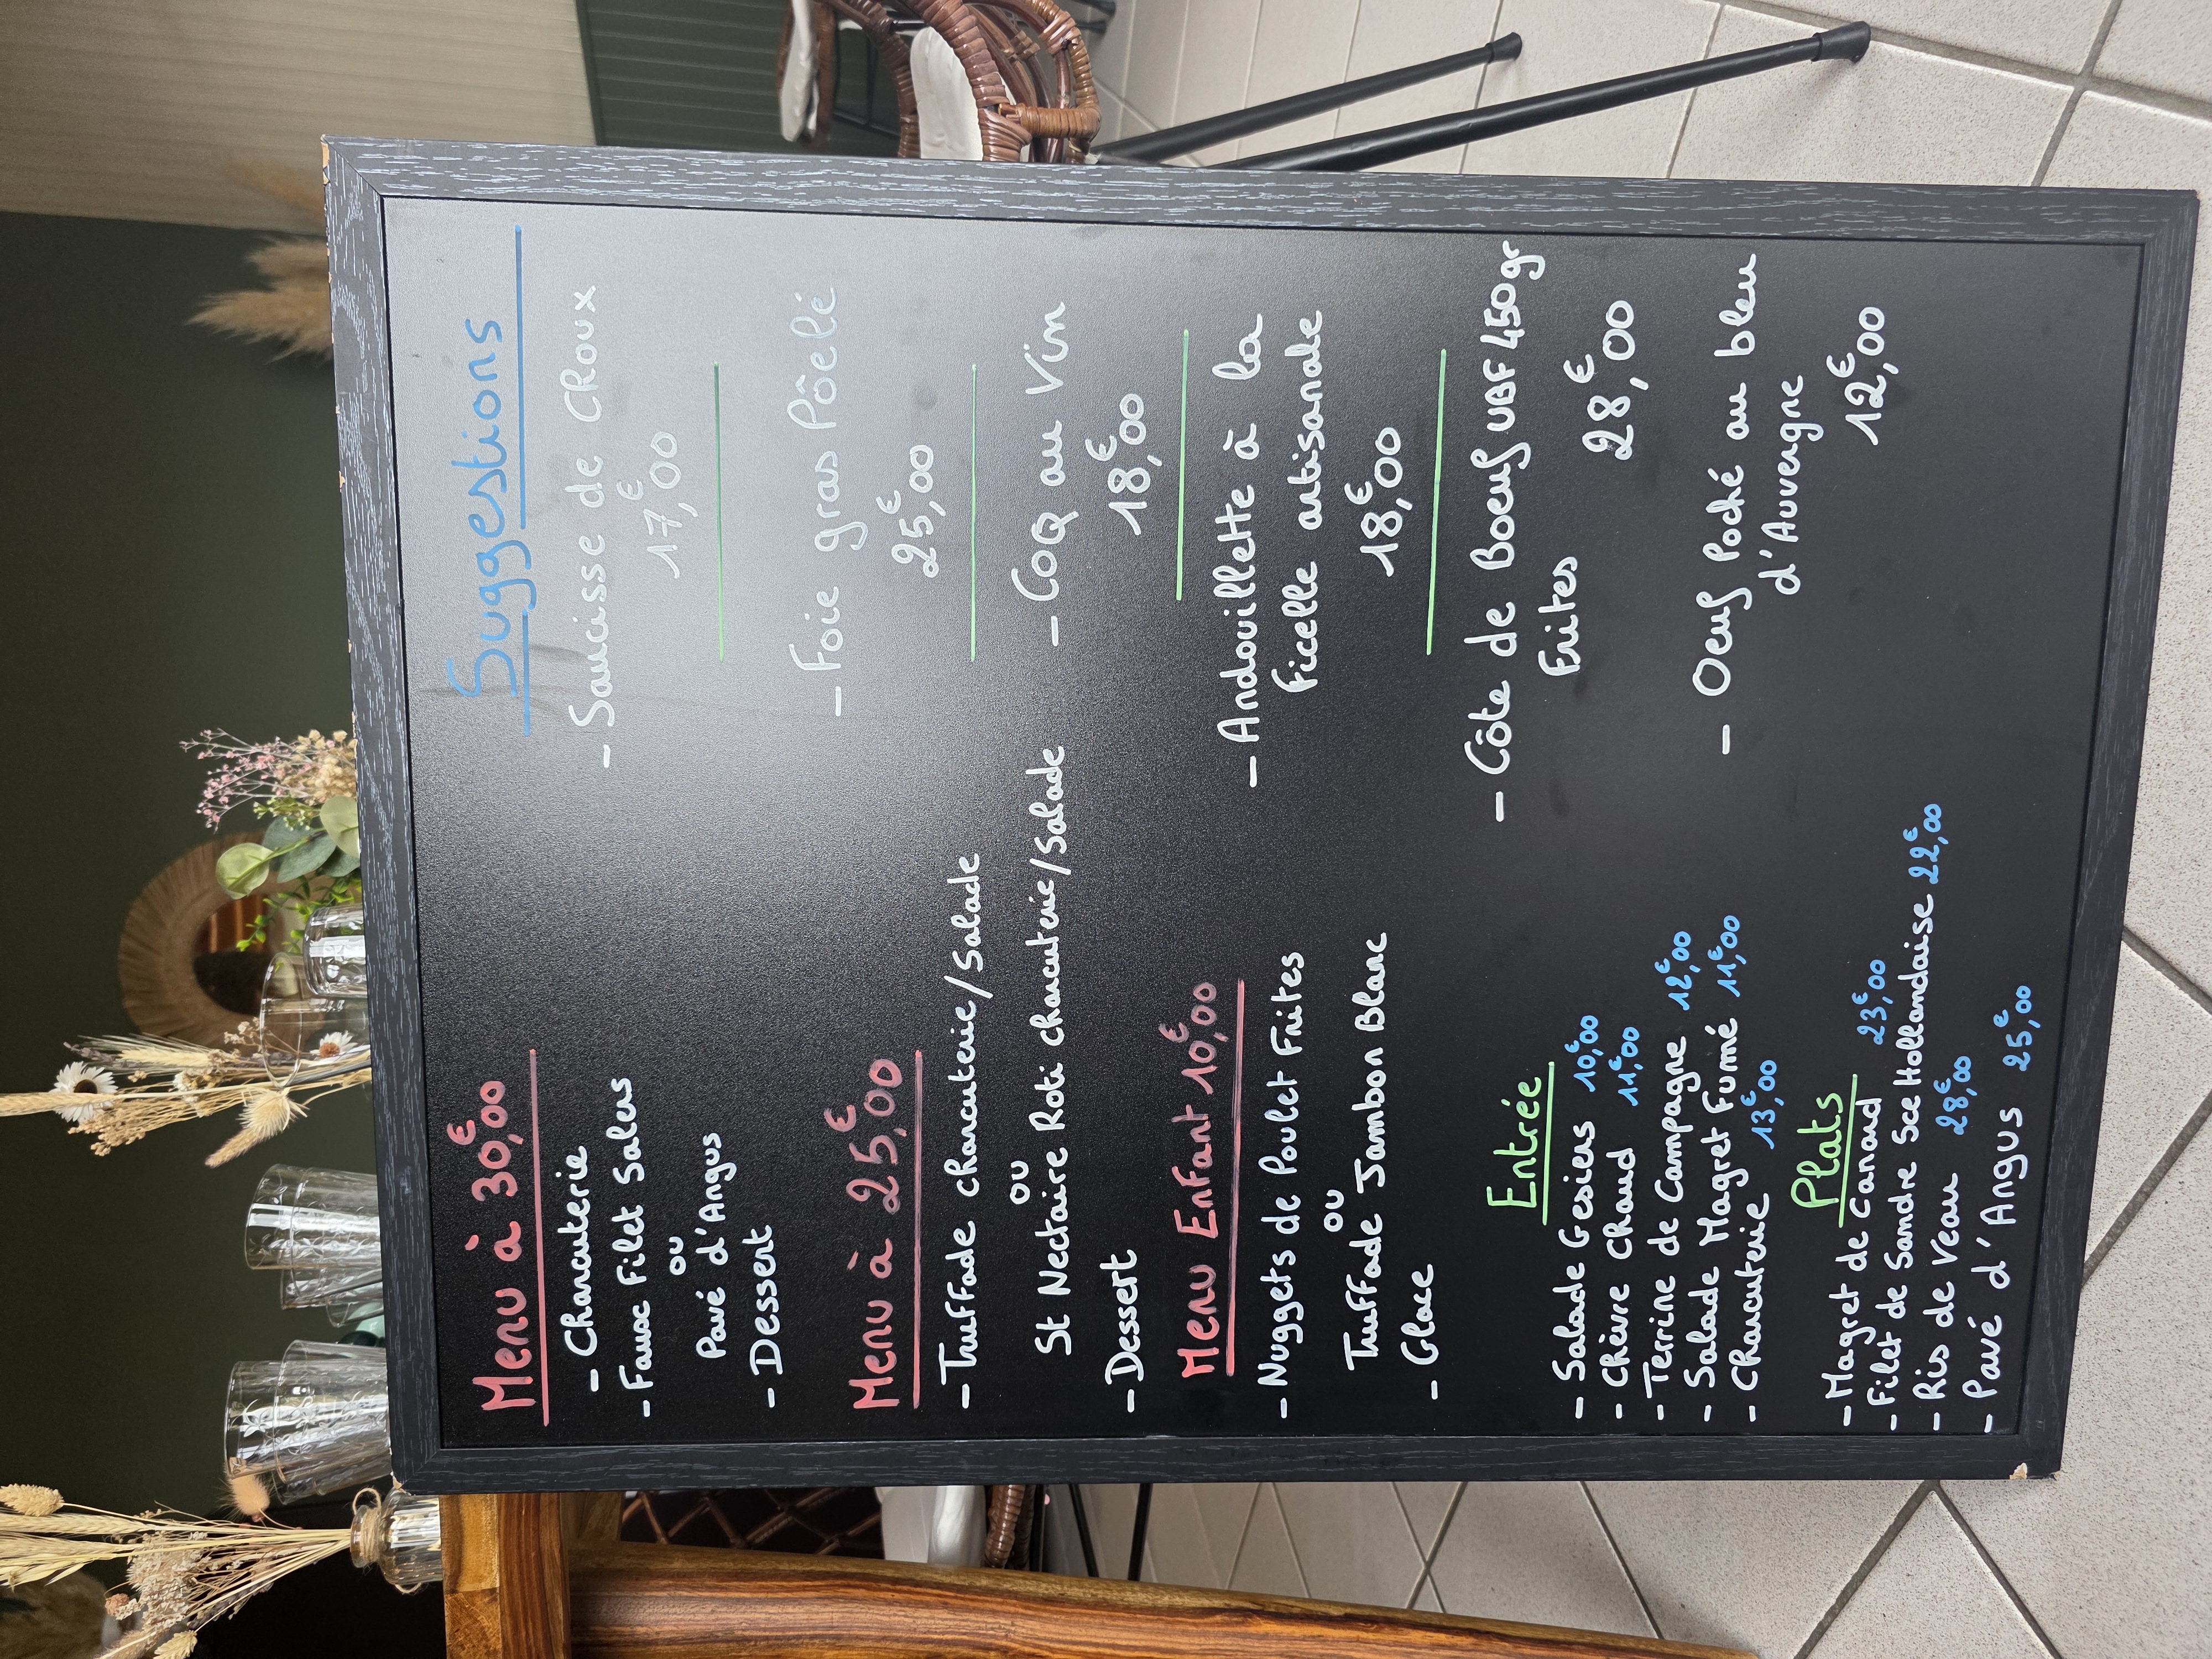 Menu à 30,00€
- Charcuterie
- Faux Filet Salers
ou
Pavé d'Angus
- Dessert
Menu à 25,00€
- Truffade charcuterie/Salade
ou
St Nectaire Roti charcuterie/Salade
- Dessert
Menu Enfant 10,00€
- Nuggets de Poulet Frites
ou
Truffade Jambon Blanc
- Glace
Entrée
- Salade Gesiers 10,00€
- Chèvre Chaud 11,00€
- Terrine de Campagne 12,00€
- Salade Magret Fumé 11,00€
- Charcuterie 13,00€
Plats
- Magret de Canard 23,00€
- Filet de Sandre Sce Hollandaise 22,00€
- Ris de Veau 28,00€
- Pavé d'Angus 25,00€
Suggestions
- Saucisse de Choux
17,00€
- Foie gras Pôelé
25,00€
- Coq au Vin
18,00€
- Andouillette à la
Ficelle artisanale
18,00€
- Côte de Boeuf UBF 450gr
Frites
28,00€
- Oeuf Poché au bleu
d'Auvergne
12,00€